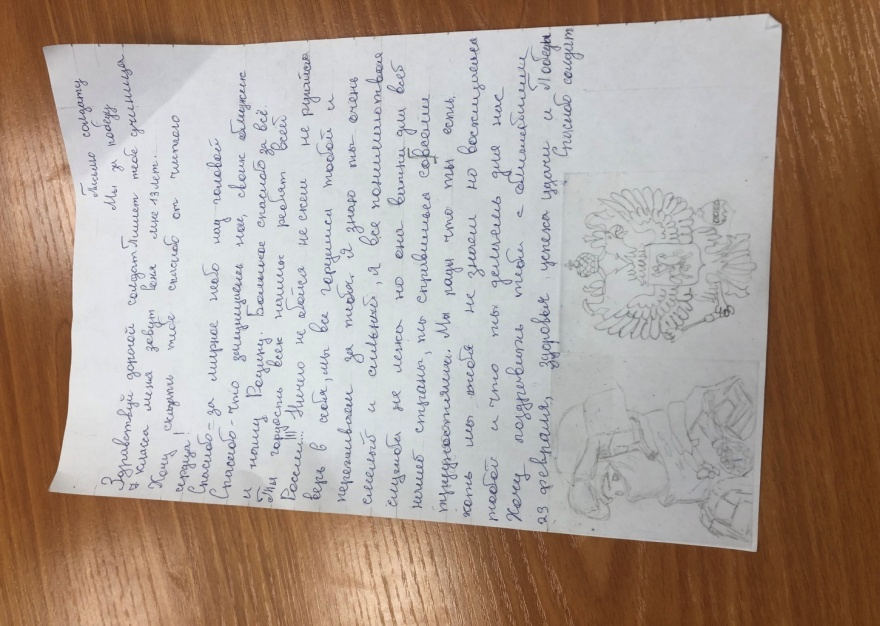 Письмо солдату
Мы за победу
Здравствуй дорогой солдат Пишет тебе ученица
7 класса меня зовут Вена мне 13 лет.
Хочу сказать тебе спасибо от чистого
сердца!
Спасибо- за мирное небо над головой
Спасибо- что защищаешь нас, своих ближних
и нашу Родину. Большое спасибо за всё.
Ты гордость всех наших ребят всей
России!!! Ничего не бойся не с кем не ругайся
верь в себя, мы все гордимся тобой и
переживаем за тебя. Я знаю ты очень
смелый и сильный, я все понимаю твоя
служба не легка но она важна для всей
нашей страны, ты справишься со всеми
трудностями. Мы рады что ты есть.
хоть мы тебя не знаем но восхищены
тобой и что ты делаешь для нас
Хочу поздравить тебя с
23 февраля, здоровья успеха удачи и Победы
Спасибо солдат